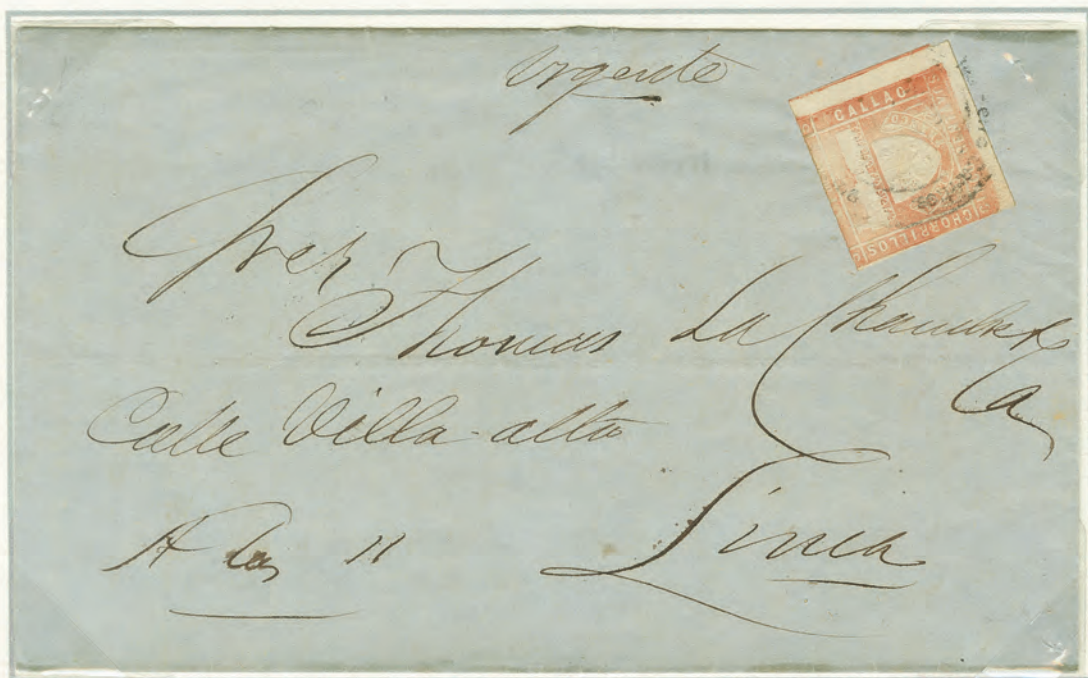 Urgente
CALLAO
CHORRILLOS
Thomas La Chambre
Calle Villa-alta
Ca
A las 11
Lima